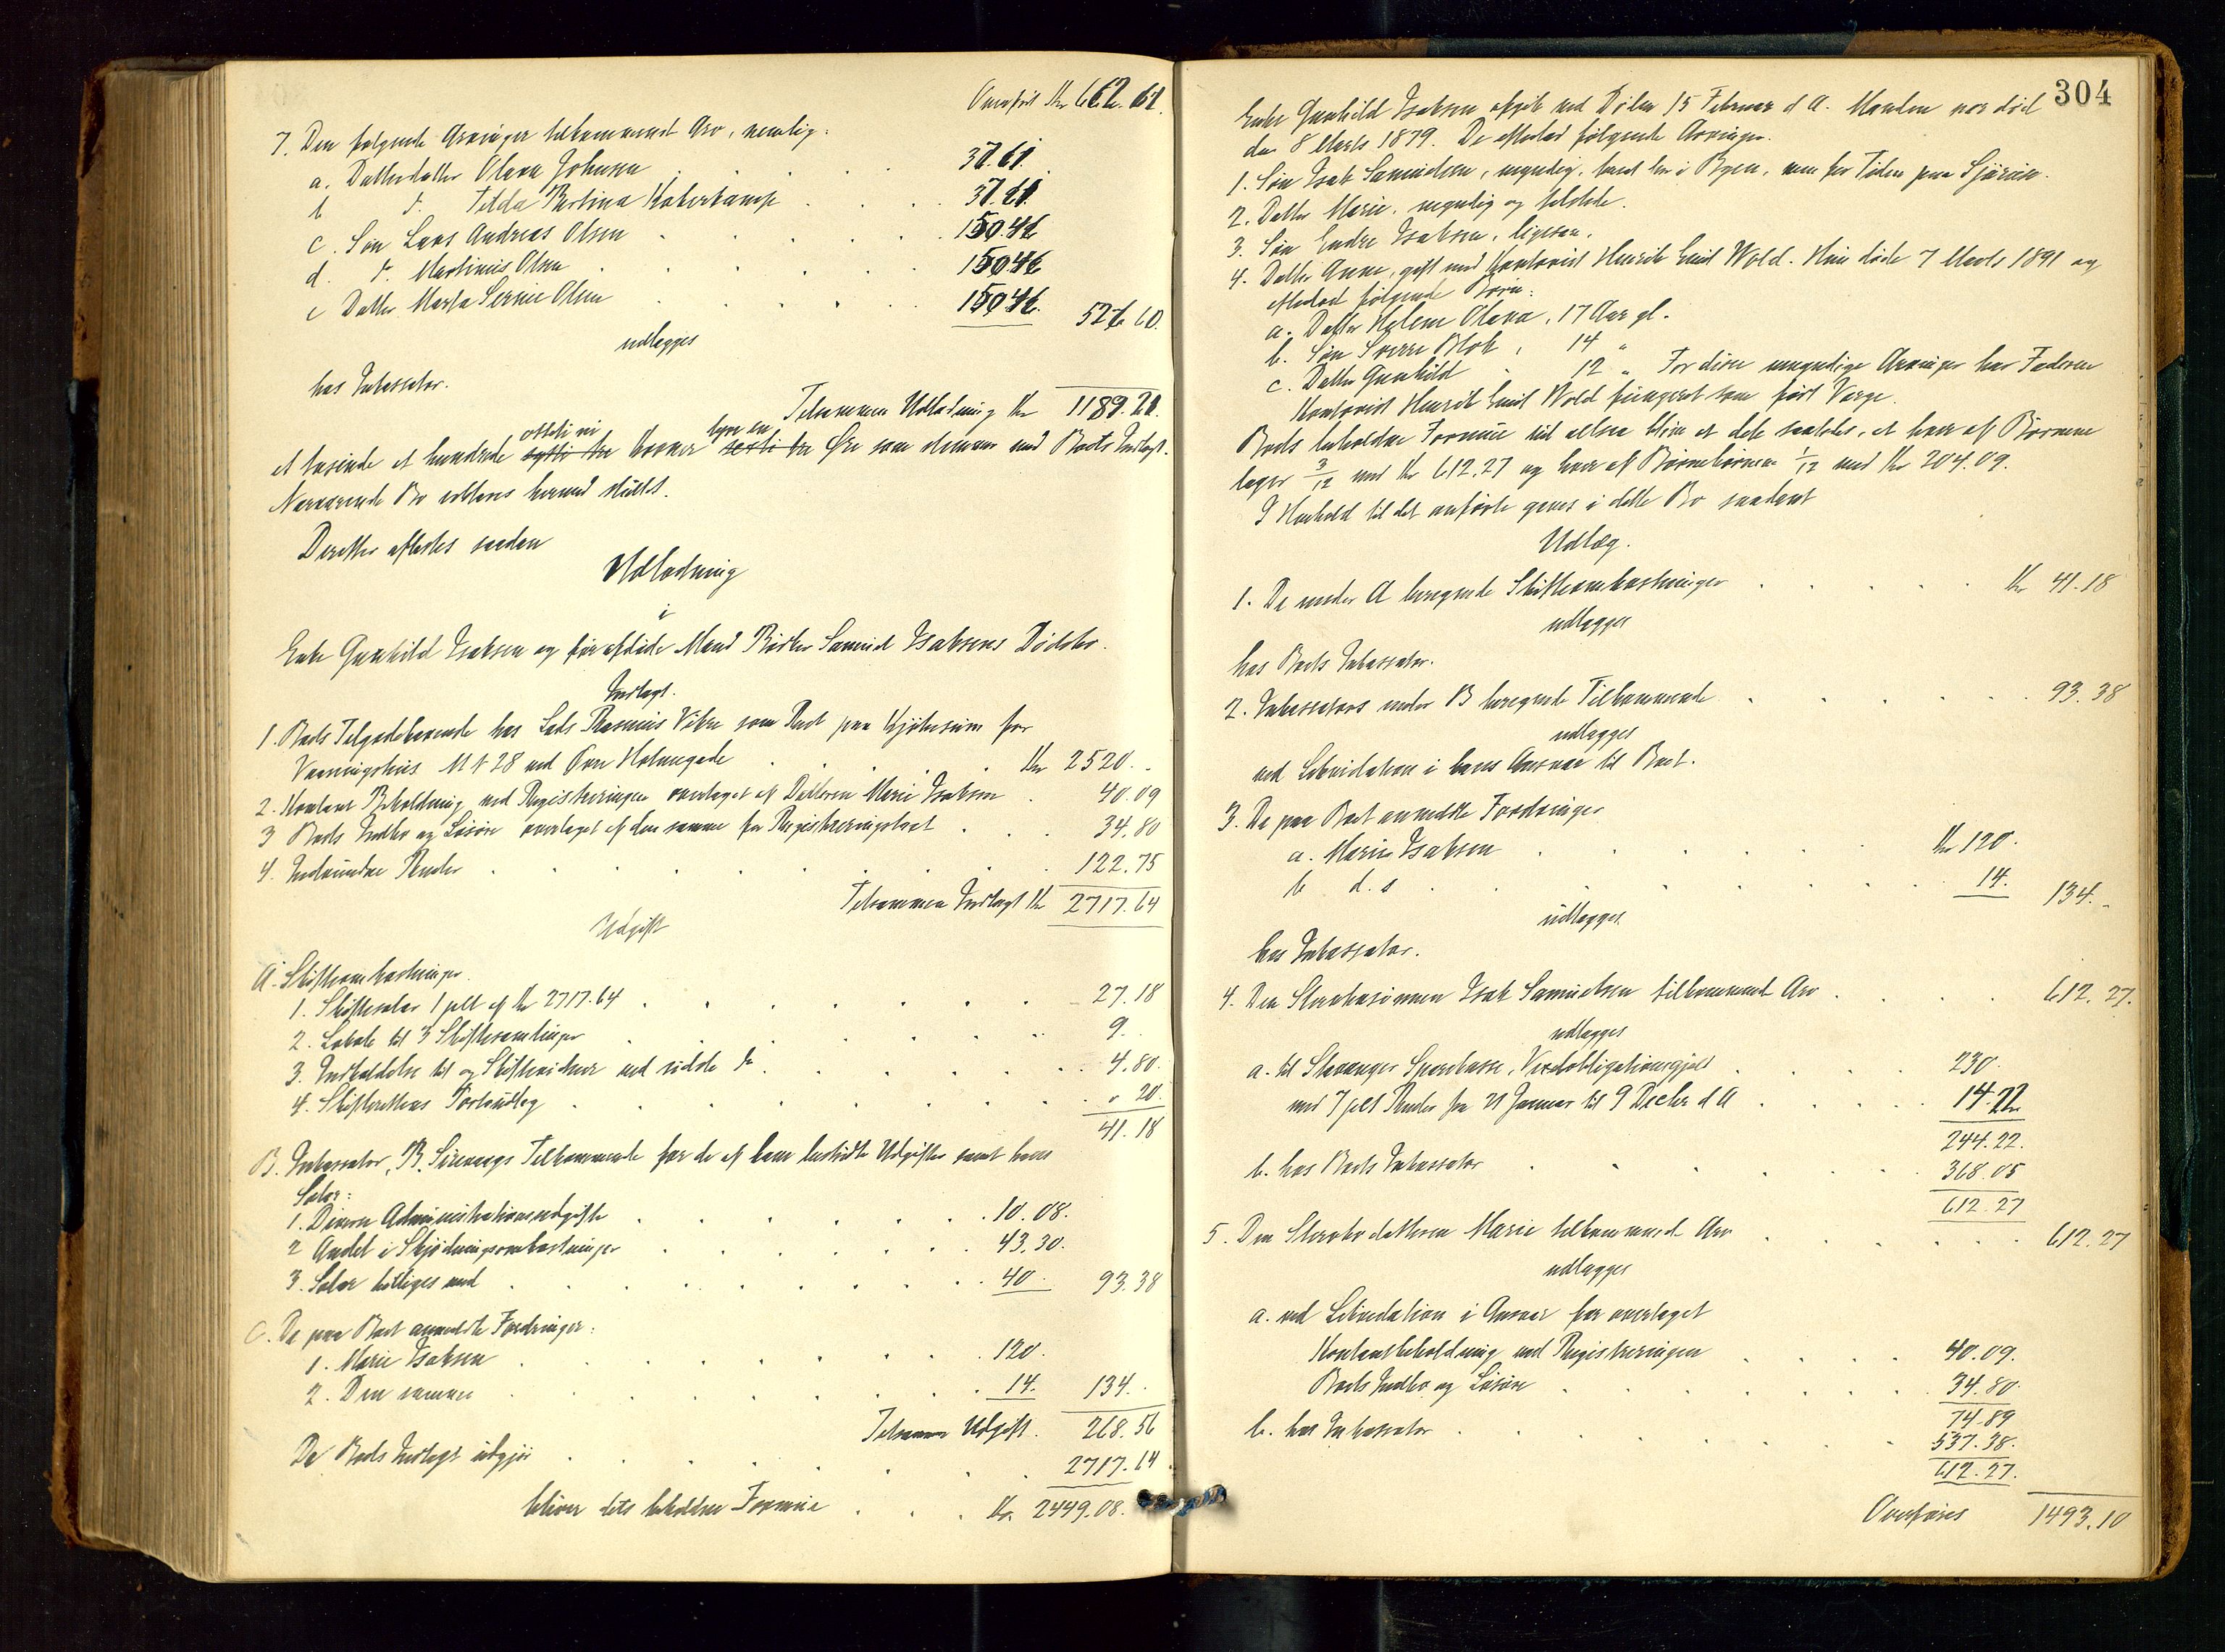 Overført Kr 662.61.
7. Den følgende Arvinger tilkommende Arv, nemlig:
a. Datterdatter Olava Johnsen 37.61
b d. Tilda Bertina Haberkamp 37.61
c. Søn Lars Andreas Olsen 150.46
d. d. Martinius Olsen 150.46
e Datter Marta Serine Olsen 150.46. 526.60.
udlægges
hos Inkassator.
Tilsammen Udlodning Kr 1189.21.
otteti ni tyve en
et tusinde et hundrede Kroner Øre som stemmer med Boets Indtægt.
Nærværende Bo erklæres hermed sluttet.
Derefter afsluttes saadan
Udlodning
i
Enke Gunhild Isaksen og førafdøde Mand Bødker Samuel Isaksens Dødsbo.
Indtægt.
1. Boets Tilgodehavende hos Lods Rasmus Vikse som Rest paa Kjøbesum for
Vaaningshus M N 28 ved Øvre Holmegade Kr 2520. -
2. Kontant Beholdning ved Registreringen overtaget af Datteren Marie Isaksen 40.09
3 Boets Indbo og Løsøre overtaget af den samme for Registreringstaxt 34.80
4. Indvundne Renter 122.75
Tilsammen Indtægt Kr 2717.64
Udgift
A. Skifteomkostninger.
1. Skiftesalær 1 pCt af Kr 2717.64 27.18
2. Lokale til 3 Skiftesamlinger 9.
3. Indkaldelse til og Skiftevidner ved sidste do 4.80.
4. Skifterettens Portoudlæg " 20.
41.18
B. Inkassator, B. Sirevaags Tilkommende for de af ham bestridte Udgifter samt hans
Salær:
1. Diverse Administrationsudgifter 10.08.
2 Andel i Skjødningsomkostninger 43.30.
3. Salær billiges med 40. 93.38
C. De paa Boet anmeldte Fordringer:
1. Marie Isaksen 120.
2. Den samme 14. 134. -
Tilsammen Udgift. 268.56
Da Boets Indtægt udgjør 2717.64
bliver dets beholdne Formue Kr. 2449.08.
304
Enke Gunhild Isaksen afgik ved Døden 15 Februar d A. Manden var død
den 8 Marts 1879. De efterlod følgende Arvinger.
1. Søn Isak Samuelsen, myndig, bosat her i Byen, men for Tiden paa Sjøreise.
2. Datter Marie, myndig og tilstede.
3. Søn Endre Isaksen, ligesaa.
4. Datter Anne, gift med Kontorist Henrik Emil Wold. Hun døde 7 Marts 1891 og
efterlod følgende Børn:
a. Datter Helene Olava, 17 Aar gl.
b. Søn Sverre Blok, 14 "
c. Datter Gunhild 12 " For disse umyndige Arvinger har Faderen
Kontorist Henrik Emil Wold fungeret som født Værge.
Boets beholdne Formue vil altsaa blive at dele saaledes, at hver af Børnene
tager 3/12 med Kr 612.27 og hver af Børnebørnene 1/12 med Kr 204.09.
I Henhold til det anførte gjøres i dette Bo saadant
Udlæg.
1. De under A beregnede Skifteomkostninger Kr 41.18
udlægges
hos Boets Inkassator.
2. Inkassators under B beregnede Tilkommende 93.38
udlægges
ved Likvidation i hans Ansvar til Boet.
3. De paa Boet anmeldte Fordringer
a. Marie Isaksen Kr 120.
b d. s 14. 134. -
udlægges
hos Inkassator.
4. Den Stervbosønnen Isak Samuelsen tilkommende Arv 612.27.
udlægges
a. til Stavanger Sparekasse, Vexelobligationsgjæld 230.
med 7 pCt Renter fra 21 Januar til 9 Decbr d A 14.22
244.22.
b. hos Boets Inkassator 368.05
612.27
5. Den Sterbodatteren Marie tilkommende Arv 612.27
udlægges
a. ved Likvidation i Ansvar for overtaget
Kontantbeholdning ved Registreringen 40.09.
Boets Indbo og Løsøre 34.80.
74.89
b. hos Inkassator 537.38.
612.27.
Overføres 1493.10